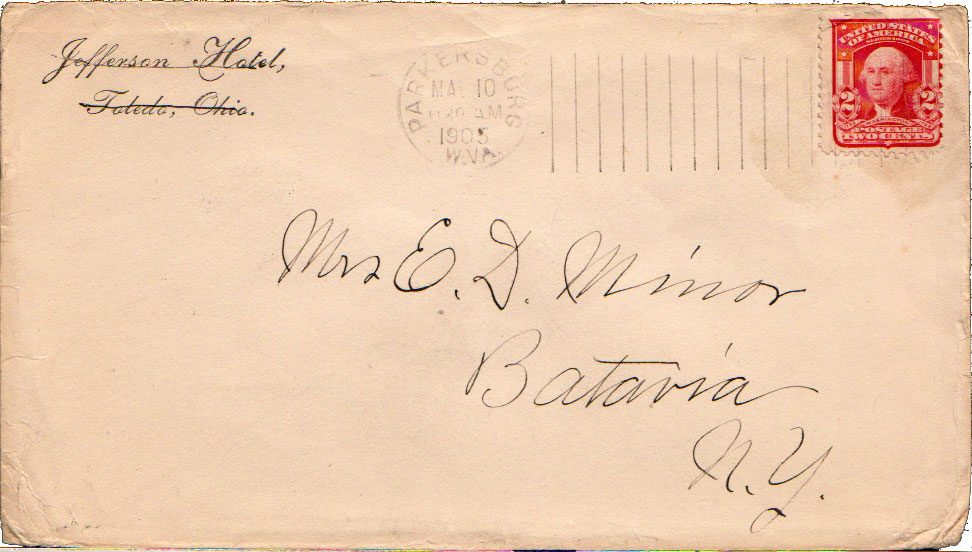 Jefferson Hotel,
Toledo, Ohio.
PARKERSBURG
MA 10
AM
1905
W.VA.
UNITED STATES
OF AMERICA
2 2
WASHINGTON
POSTAGE
TWO CENTS
Mrs E. D. Minor
Batavia
N.Y.